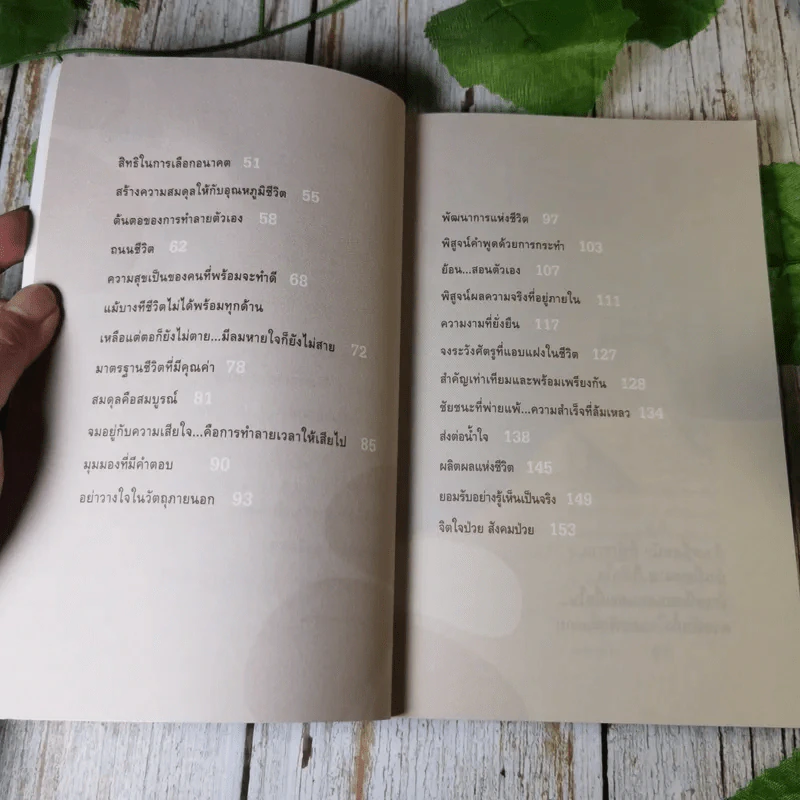 สิทธิในการเลือกอนาคต 51
สร้างความสมดุลให้กับอุณหภูมิชีวิต 55
ต้นตอของการทำลายตัวเอง 58
ถนนชีวิต 62
ความสุขเป็นของคนที่พร้อมจะทำดี 68
แม้บางทีชีวิตไม่ได้พร้อมทุกด้าน
เหลือแต่ตอก็ยังไม่ตาย...มีลมหายใจก็ยังไม่สาย 72
มาตรฐานชีวิตที่มีคุณค่า 78
สมดุลคือสมบูรณ์ 81
จมอยู่กับความเสียใจ...คือการทำลายเวลาให้เสียไป 85
มุมมองที่มีคำตอบ 90
อย่าวางใจในวัตถุภายนอก 93
พัฒนาการแห่งชีวิต 97
พิสูจน์คำพูดด้วยการกระทำ 103
ย้อน...สอนตัวเอง 107
พิสูจน์ผลความจริงที่อยู่ภายใน 111
ความงามที่ยั่งยืน 117
จงระวังศัตรูที่แอบแฝงในชีวิต 127
สำคัญเท่าเทียมและพร้อมเพรียงกัน 128
ชัยชนะที่พ่ายแพ้...ความสำเร็จที่ล้มเหลว 134
ส่งต่อน้ำใจ 138
ผลิตผลแห่งชีวิต 145
ยอมรับอย่างรู้เห็นเป็นจริง 149
จิตใจป่วย สังคมป่วย 153